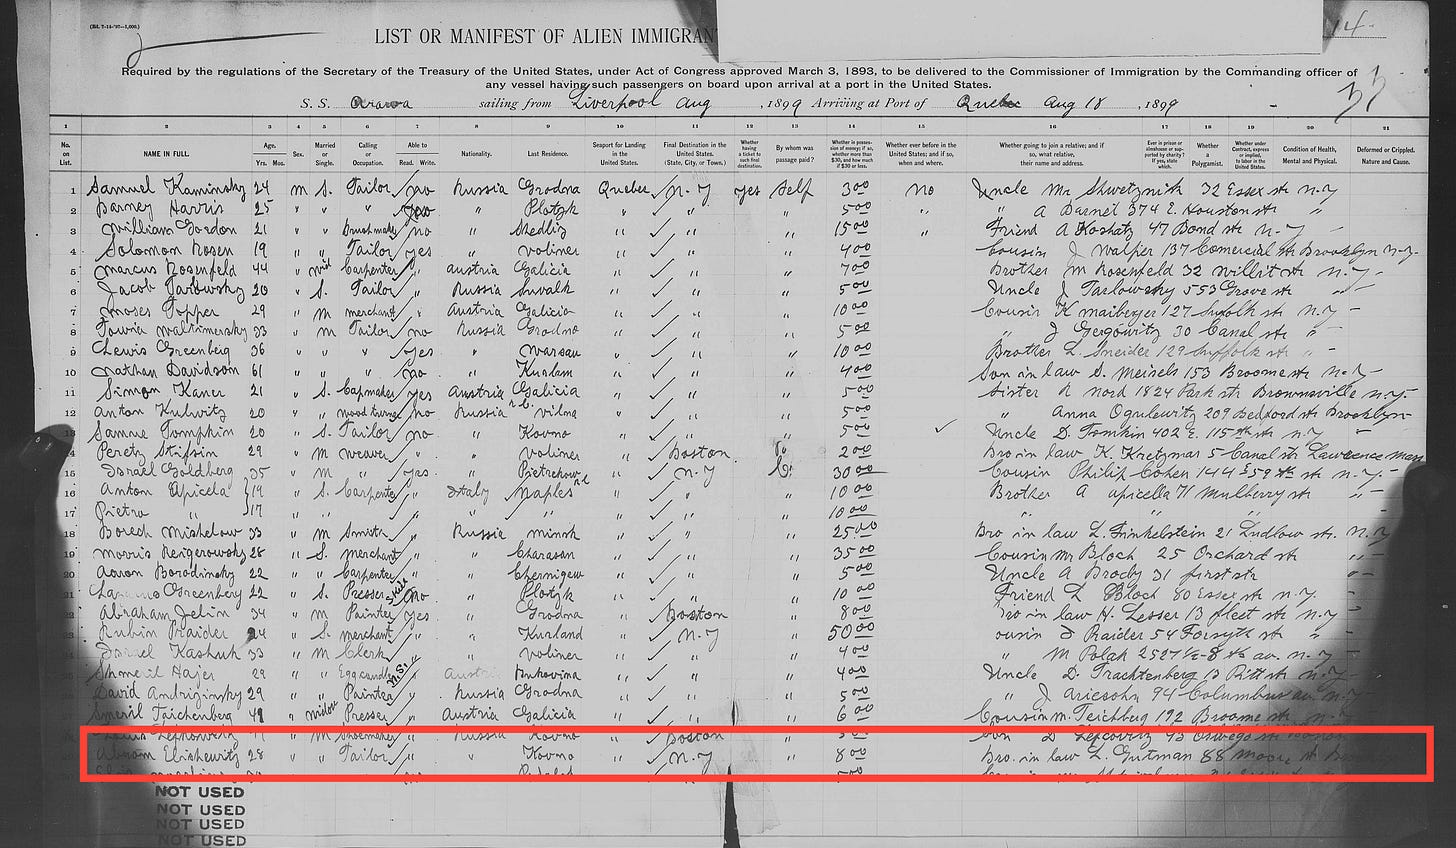 (Ed. 7-14-'97-1,000.)
14
LIST OR MANIFEST OF ALIEN IMMIGRAN
Required by the regulations of the Secretary of the Treasury of the United States, under Act of Congress approved March 3, 1893, to be delivered to the Commissioner of Immigration by the Commanding officer of
any vessel having such passengers on board upon arrival at a port in the United States.
S. S. Arawa sailing from Liverpool Aug , 1899 Arriving at Port of Quebec Aug 18 , 1899
1 2 3 4 5 6 7 8 9 10 11 12 13 14 15 16 17 18 19 20 21
No. on List. NAME IN FULL. Age. Yrs. Mos. Sex. Married or Single. Calling or Occupation. Able to Read. Write. Nationality. Last Residence. Seaport for Landing in the United States. Final Destination in the United States. (State, City, or Town.) Whether having a ticket to such final destination. By whom was passage paid? Whether in possession of money; if so, whether more than $30, and how much if $30 or less. Whether ever before in the United States; and if so, when and where. Whether going to join a relative; and if so, what relative, their name and address. Ever in prison or almshouse or supported by charity? If yes, state which. Whether a Polygamist. Whether under Contract, express or implied, to labor in the United States. Condition of Health, Mental and Physical. Deformed or Crippled. Nature and Cause.
1 Samuel Kaminsky 24 m S. Tailor no Russia Grodna Quebec N. Y yes Self 3 00 no Uncle Mr Shwetznick 32 Essex st N.Y
2 Barney Harris 25 " " " " Plotzk " " " 5 00 " " A Barnet 374 E. Houston st "
3 William Gordon 21 " " brushmaker no " Shedlig " " " 15 00 " Friend A Koshatz 47 Bond st N.Y
4 Solomon Rosen 19 " " Tailor yes " Voliner " " " 4 00 Cousin J Walper 137 Comercial st Brooklyn N.Y.
5 Marcus Rosenfeld 44 " mrd Carpenter " Austria Galicia " " " 7 00 Brother M Rosenfeld 32 Willit st N.Y
6 Jacob Tarlowsky 20 " S. Tailor " Russia Suwalk " " " 5 00 Uncle J Tarlowsky 553 Grove st "
7 Moses Topper 29 " M merchant " Austria Galicia " " " 10 00 Cousin K Maiberger 127 Suffolk st N.Y
8 Towia Waltimersky 33 " m Tailor no Russia Grodno " " " 5 00 " J Gergowitz 30 Canal st "
9 Lewis Greenberg 36 " " " yes " Warsau " " " 10 00 Brother L Sneider 129 Suffolk st "
10 Nathan Davidson 61 " " " no " Kurdam " " " 4 00 Son in law S. Meisels 153 Broome st N.Y
11 Simon Kaner 21 " S. Capmaker yes Austria Galicia " " " 5 00 Sister R Nord 1824 Park st Brownsville N.Y.
12 Anton Kulwitz 20 " " wood turner no Russia Vilna " " " 5 00 " Anna Ogulewitz 209 Bedford st Brooklyn
13 Samue Tompkin 20 " S. Tailor no " Kovno " " " 5 00 Uncle D. Tomkin 402 E. 115th st N.Y
14 Peretz Stifsin 29 " m weaver " " Voliner " Boston " 2 00 Bro in law K. Kretzmar 5 Canal st Lawrence Mass
15 Israel Goldberg 35 " m " yes " Pietrkow " N.Y 30 00 Cousin Philip Cohen 144 E 59th st N.Y.
16 Anton Apicela 19 " S. Carpenter " Italy Naples " " " 10 00 Brother A Apicella 71 Mulberry st "
17 Pietro " 17 " " " " " " " " " 10 00 " " "
18 Borech Mishelow 33 " M Smith " Russia Minsk " " " 25 00 Bro in law L. Finkelstein 21 Ludlow st. N.Y
19 Morris Reigerowsky 28 " S. merchant " " Charasan " " " 35 00 Cousin Mr Bloch 25 Orchard st "
20 Aaron Borodinsky 22 " " Carpenter " " Chernigew " " " 5 00 Uncle A Brodby 31 first str "
21 Greenberg 22 " S. Presser no " Plotzk " " " 10 00 Friend L Bloch 80 Essex st N.Y
22 Abraham Jelin 34 " m Painter yes " Grodna " Boston " 8 00 Bro in law H. Lesser 13 fleet st N.Y
23 Rubin Praider 24 " S. merchant " " Kurland " N.Y " 50 00 Cousin J Raider 54 Forsyth st "
Israel Kashuk 33 " M Clerk " " Voliner " " " 4 00 " M Polak 2527 1/2 - 8th av. N.Y
Shmeril Hajer 29 " " Eggcandler " Austria Bukovina " " " 4 00 Uncle D. Trachtenberg 13 Pitt st N.Y
David Andrizinsky 29 " " Painter " Russia Grodna " " " 5 00 " J Ariesohn 94 Columbus av N.Y
Smeril Taichenberg 49 " widow Presser " Austria Galicia " " " 6 00 Cousin M. Teichberg 192 Broome st N.Y
Lewis Lefkowitz " M Shoemaker " Russia Kovno " Boston " Son D Lefcovitz 43 Oswego st
Abrom Elishewitz 28 " " Tailor " " Kovno " N.Y " 8 00 Bro. in law L. Gutman 88 Moore st
NOT USED
NOT USED
NOT USED
NOT USED